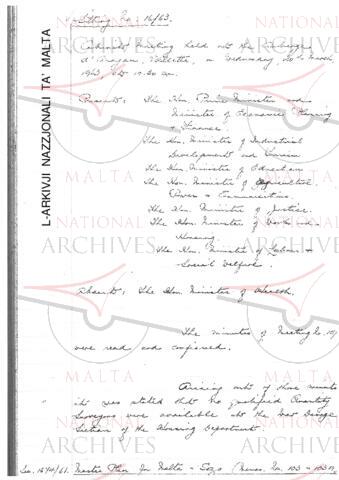 L-ARKIVJI NAZZJONALI TA' MALTA
Sitting No. 16/63.
Cabinet meeting held at the Auberge
d'Aragon, Valletta, on Wednesday, 20th March,
1963, at 10.30 am.
Present: The Hon. Prime Minister and
Minister of Economic Planning
& Finance.
The Hon. Minister of Industrial
Development and Tourism
The Hon. Minister of Education
The Hon. Minister of Agriculture,
Power & Communications.
The Hon. Minister of Justice.
The Hon. Minister of Works and
Housing
The Hon. Minister of Labour &
Social Welfare.
Absent: The Hon. Minister of Health.
The minutes of Meeting No. 15/
were read and confirmed.
Arising out of those minutes
it was stated that no qualified Quantity
Surveyors were available at the War Damage
Section of the Housing Department.
Master Plan for Malta - Gozo (Memo. No. 103
NATIONAL ARCHIVES
MALTA